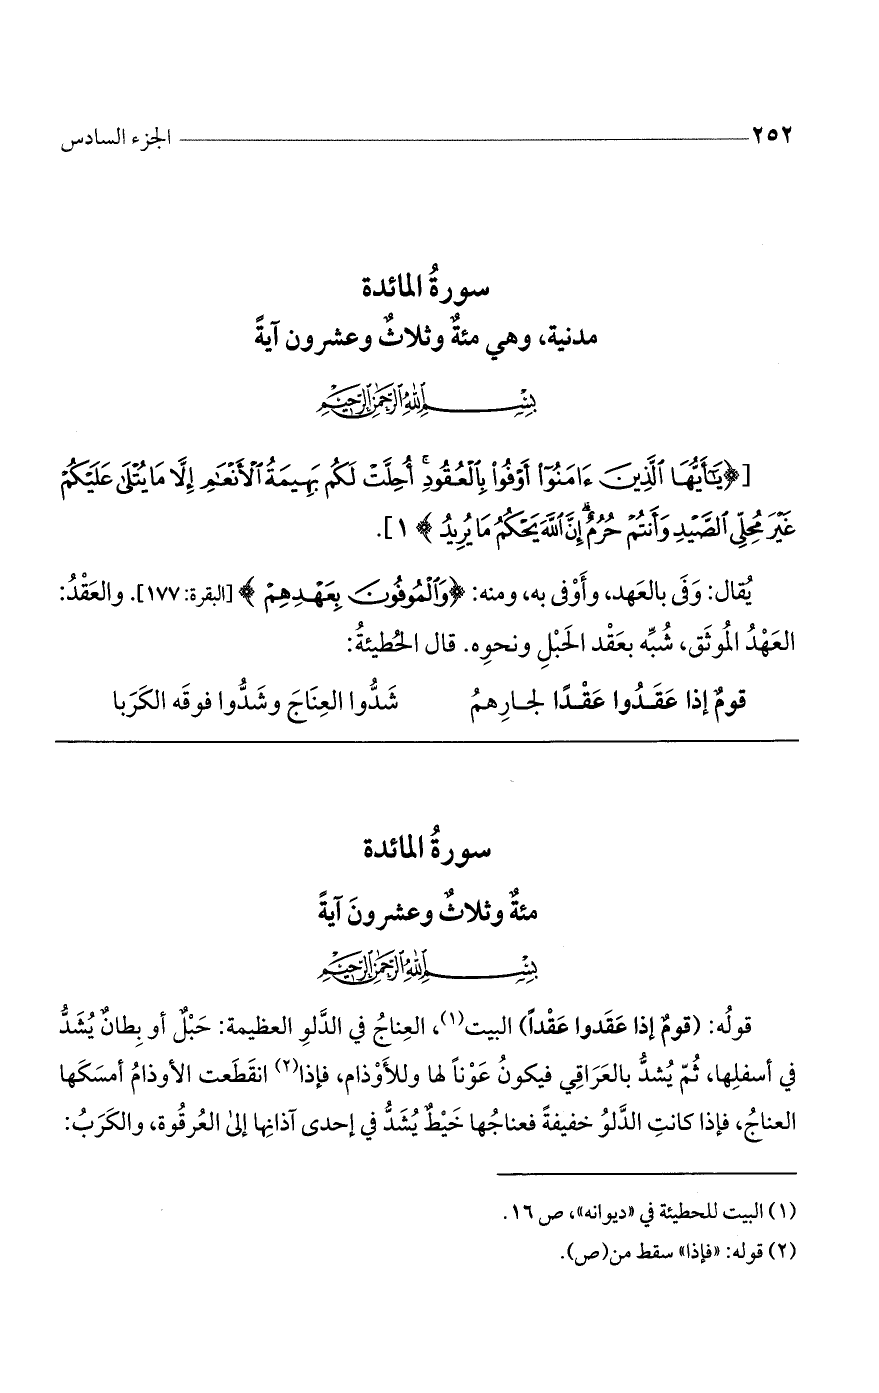 ٢٥٢ الجزء السادس
سورةُ المائدة
مدنية، وهي مئةٌ وثلاثٌ وعشرون آيةً
بِسْمِ اللَّهِ الرَّحْمَٰنِ الرَّحِيمِ
[﴿يَٰٓأَيُّهَا ٱلَّذِينَ ءَامَنُوٓا۟ أَوْفُوا۟ بِٱلْعُقُودِ ۚ أُحِلَّتْ لَكُم بَهِيمَةُ ٱلْأَنْعَٰمِ إِلَّا مَا يُتْلَىٰ عَلَيْكُمْ
غَيْرَ مُحِلِّى ٱلصَّيْدِ وَأَنتُمْ حُرُمٌ ۗ إِنَّ ٱللَّهَ يَحْكُمُ مَا يُرِيدُ﴾ ١].
يُقال: وَفَى بالعَهد، وأَوْفى به، ومنه: ﴿وَٱلْمُوفُونَ بِعَهْدِهِمْ﴾ [البقرة: ١٧٧]. والعَقْدُ:
العَهْدُ المُوثَق، شُبِّه بعَقْد الحَبْلِ ونحوِه. قال الحُطيئةُ:
قومٌ إذا عَقَدُوا عَقْدًا لجارِهمُ شَدُّوا العِنَاجَ وشَدُّوا فوقَه الكَرَبا
سورةُ المائدة
مئةٌ وثلاثٌ وعشرونَ آيةً
بِسْمِ اللَّهِ الرَّحْمَٰنِ الرَّحِيمِ
قولُه: (قومٌ إذا عَقَدوا عَقْداً) البيت(١)، العِناجُ في الدَّلوِ العظيمة: حَبْلٌ أو بِطانٌ يُشَدُّ
في أسفلِها، ثُمّ يُشدُّ بالعَرَاقِي فيكونُ عَوْناً لها وللأوْذام، فإذا(٢) انقَطَعت الأوذامُ أمسَكَها
العناجُ، فإذا كانتِ الدَّلوُ خفيفةً فعناجُها خَيْطٌ يُشَدُّ في إحدى آذانِها إلىٰ العُرقُوة، والكَرَبُ:
(١) البيت للحطيئة في «ديوانه»، ص ١٦.
(٢) قوله: «فإذا» سقط من (ص).